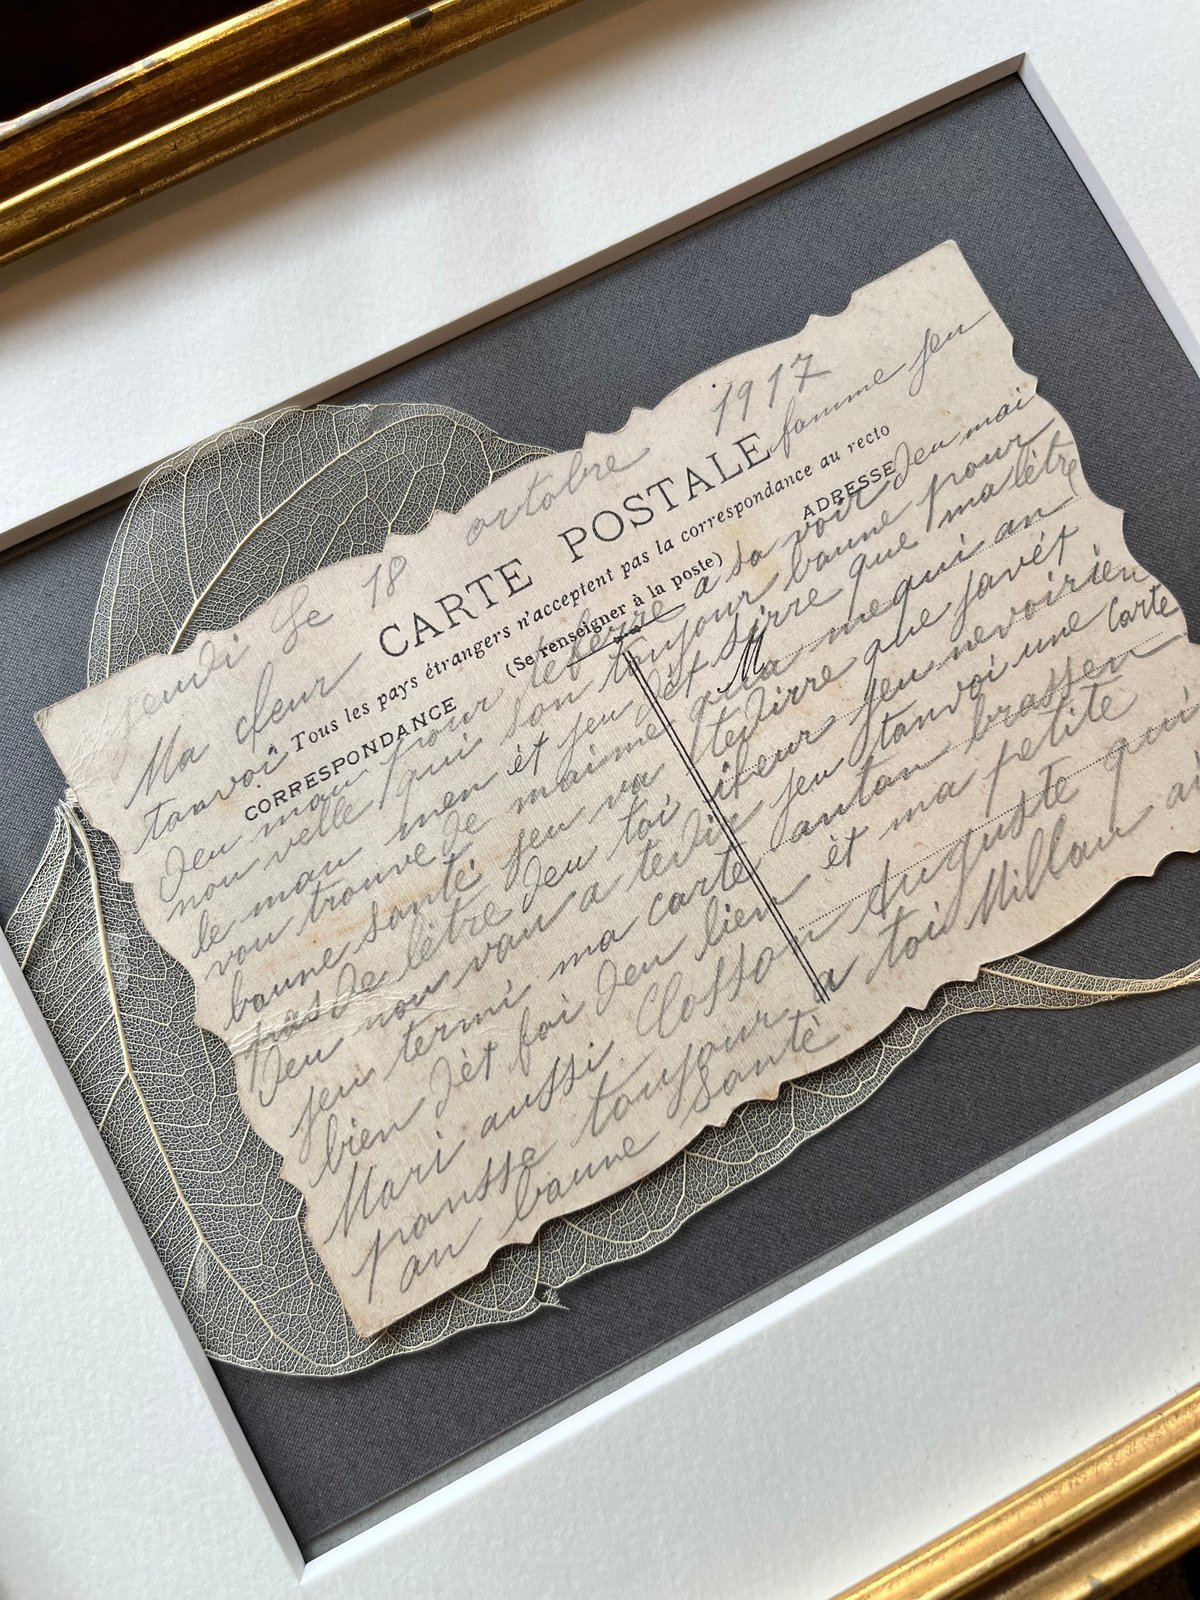 jeudi Le 18 octobre 1917
CARTE POSTALE
Tous les pays étrangers n'acceptent pas la correspondance au recto
(Se renseigner à la poste)
CORRESPONDANCE
ADRESSE
M
Ma cleur famme jeu
tanvoi deu mai
deu mau pour tefere a sa voir
nou velle qui son toujour baune pour
le mau men ét jeu dét sirre que ma létre
vou trouve de maime mequi an
baune santé jeu va tedirre que javét
pas de létre deu toi jeu nevoirien
Deu nou vau a tedir jeu tanvoi une carte
jeu termi ma carte antan brassen
bien dèt foi deu bien ét ma petite
Mari aussi Closson Auguste qui
pansse toujour a toi Millau
an baune Santè